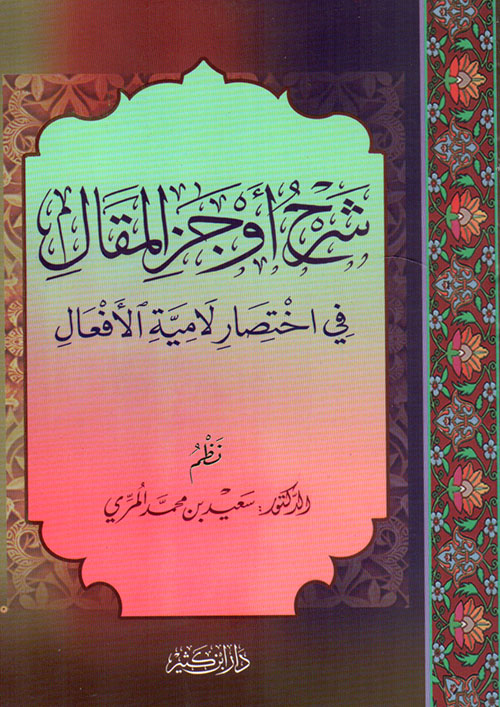 شَرْحُ أَوْجَزِ المَقَالِ
فِي اخْتِصَارِ لَامِيَّةِ الأَفْعَالِ
نَظْمُ
الدكتور: سَعيد بن محمَّد المُرِّي
دَار ابن كَثير